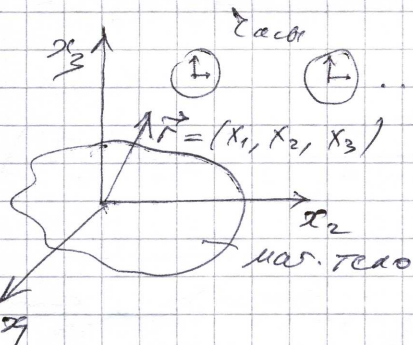 часы
x₃
r⃗ = (x₁, x₂, x₃)
x₂
мат. тело
x₁